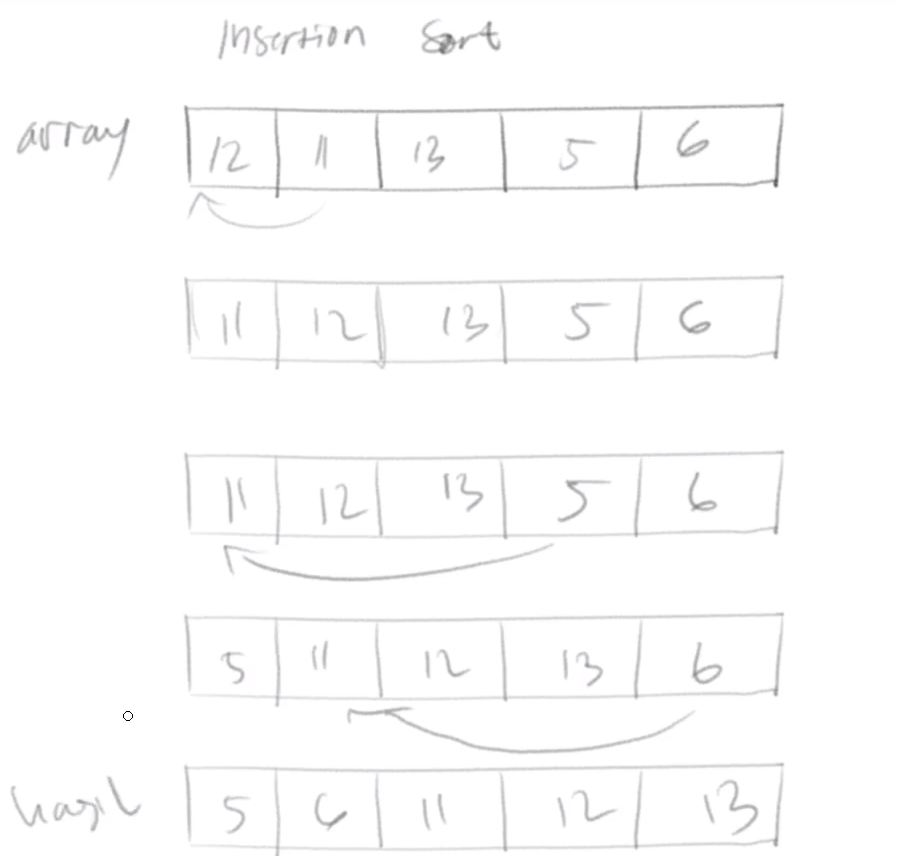 Insertion Sort
array 12 11 13 5 6
11 12 13 5 6
11 12 13 5 6
5 11 12 13 6
hasil 5 6 11 12 13